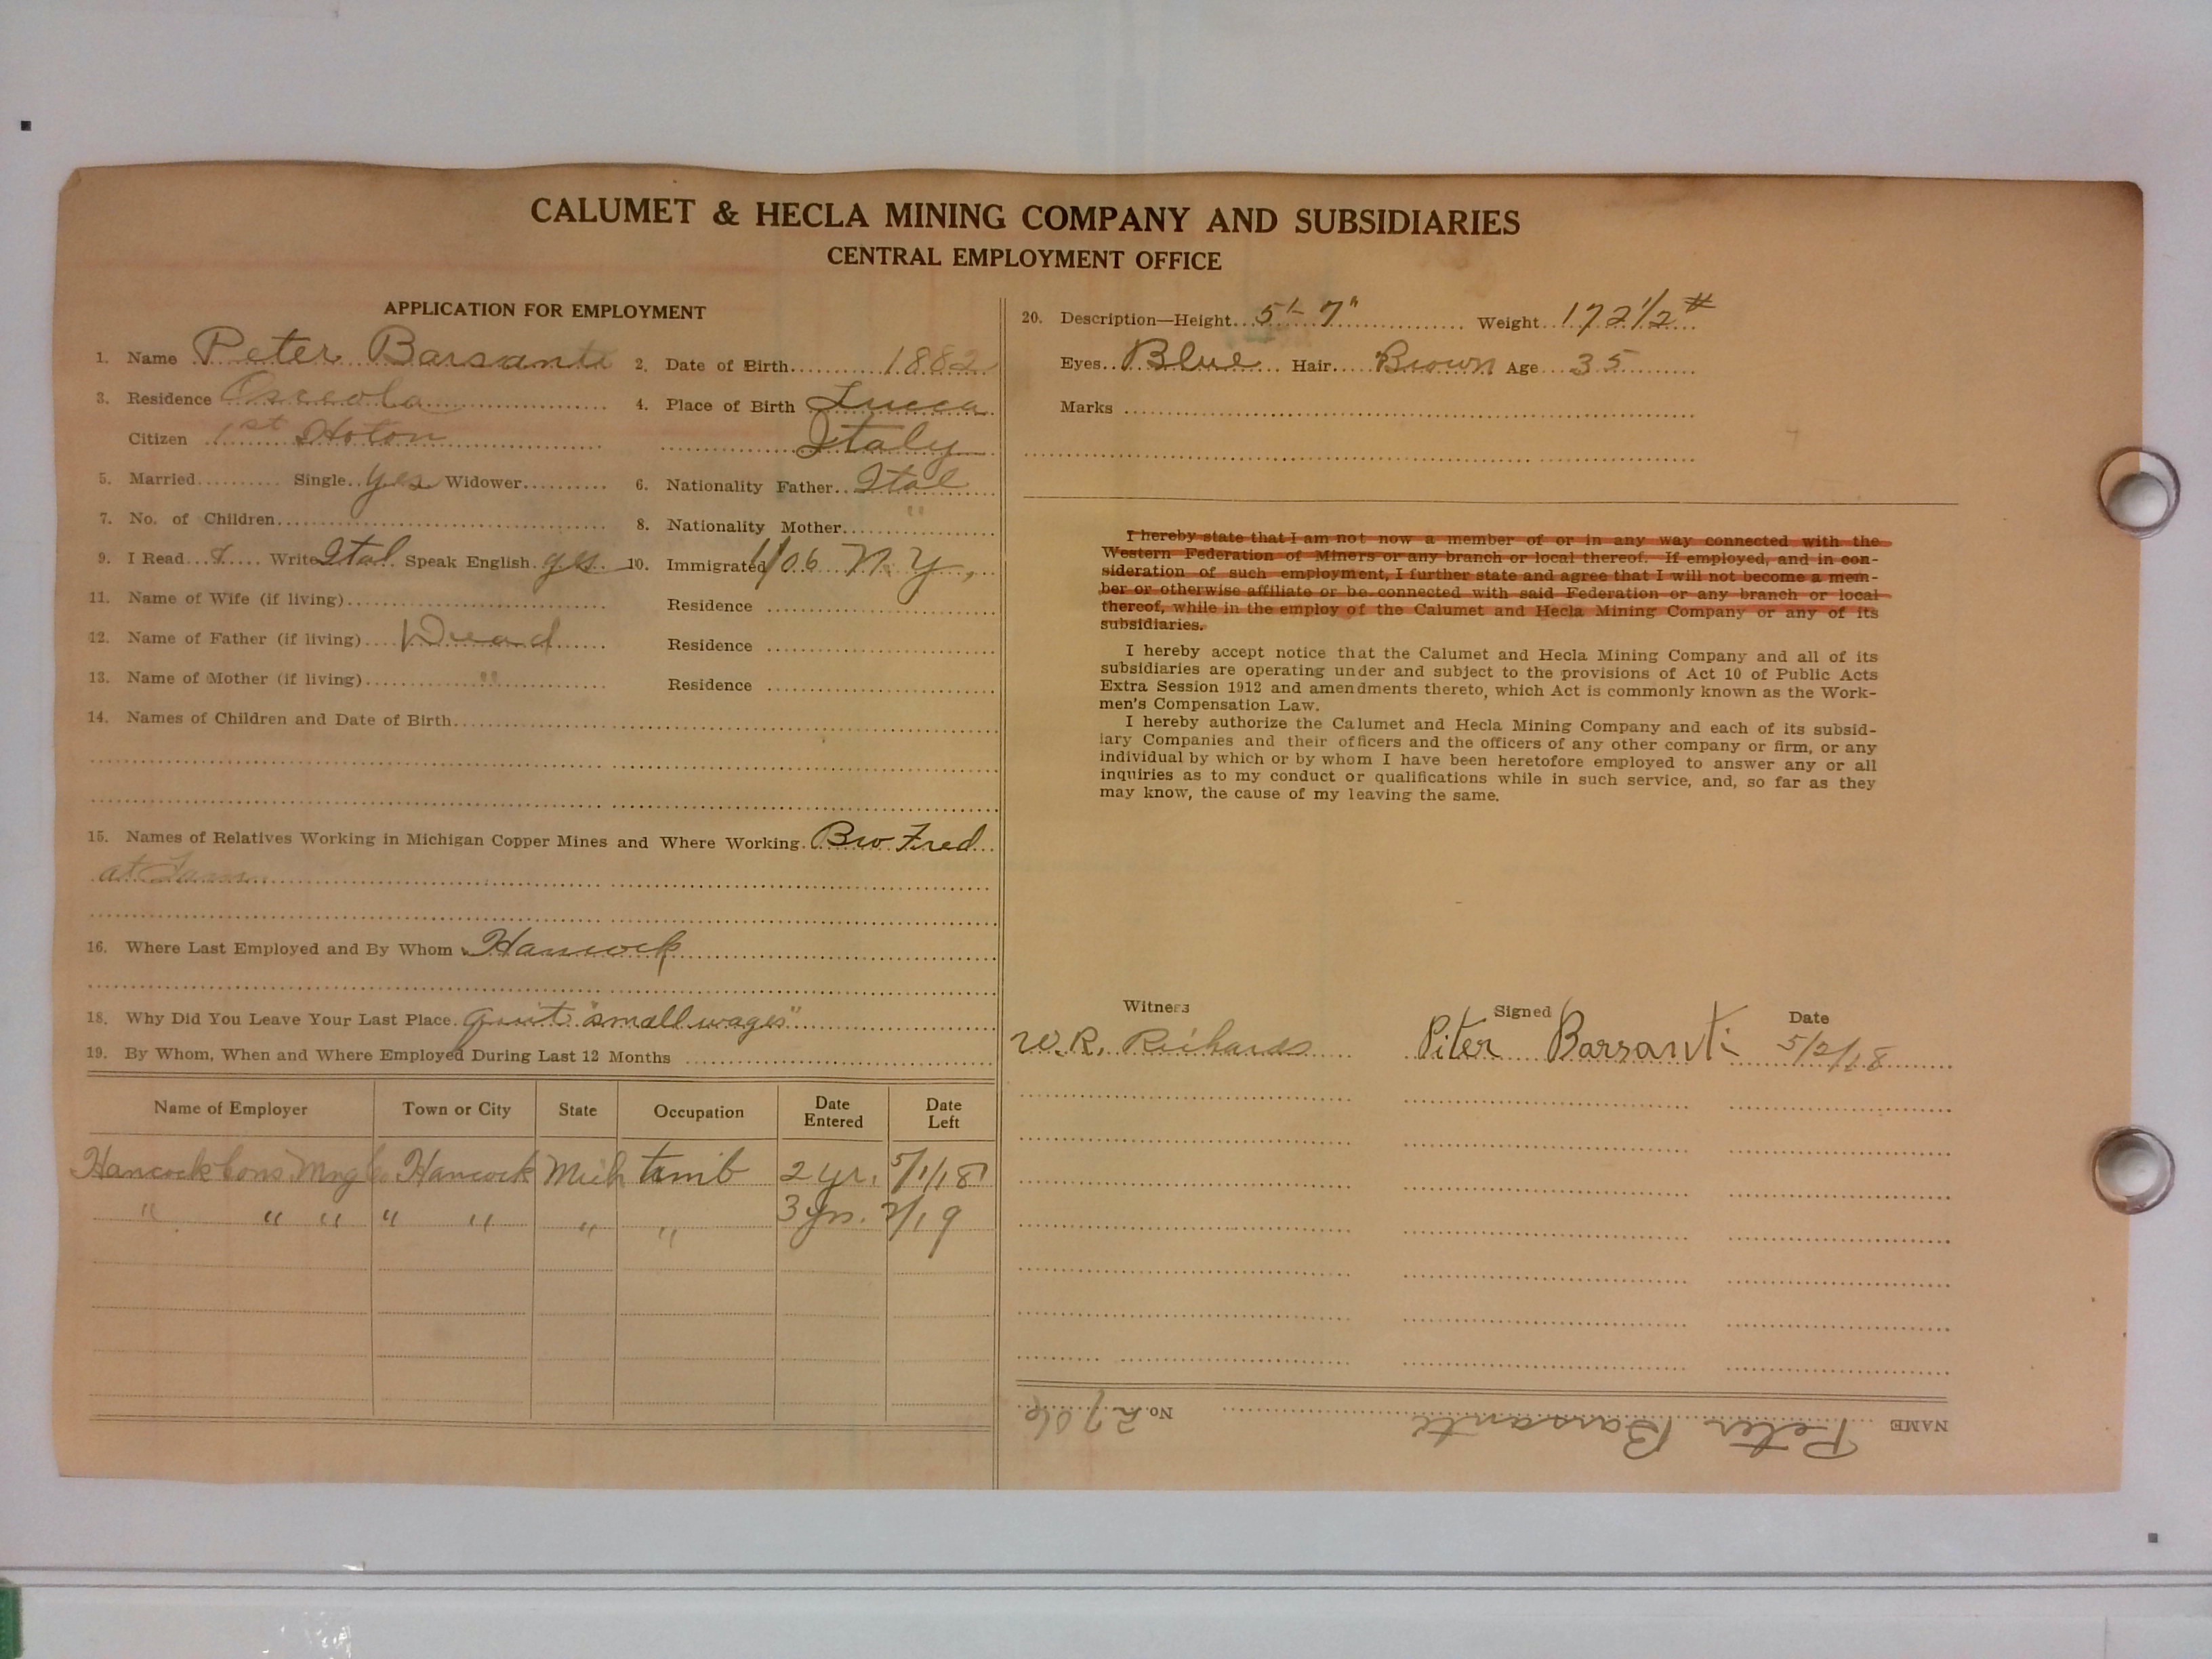 CALUMET & HECLA MINING COMPANY AND SUBSIDIARIES
CENTRAL EMPLOYMENT OFFICE
APPLICATION FOR EMPLOYMENT
1. Name Peter Barsanti 2. Date of Birth 1882
3. Residence Osceola 4. Place of Birth Lucca
Citizen 1st Hoton Italy
5. Married Single yes Widower 6. Nationality Father Ital
7. No. of Children 8. Nationality Mother "
9. I Read I Write Ital Speak English yes 10. Immigrated /06 N.Y.
11. Name of Wife (if living) Residence
12. Name of Father (if living) Dead Residence
13. Name of Mother (if living) " Residence
14. Names of Children and Date of Birth
15. Names of Relatives Working in Michigan Copper Mines and Where Working. Bro Fred
at
16. Where Last Employed and By Whom Hancock
18. Why Did You Leave Your Last Place. Quit "small wages"
19. By Whom, When and Where Employed During Last 12 Months
Name of Employer Town or City State Occupation Date Entered Date Left
Hancock Cons Mng Co Hancock Mich tmb 2 yr. 5/1/18
" " " " " " " 3 yrs. /19
20. Description—Height 5'-7" Weight 172 1/2 #
Eyes Blue Hair Brown Age 35
Marks
I hereby state that I am not now a member of or in any way connected with the
Western Federation of Miners or any branch or local thereof. If employed, and in con-
sideration of such employment, I further state and agree that I will not become a mem-
ber or otherwise affiliate or be connected with said Federation or any branch or local
thereof, while in the employ of the Calumet and Hecla Mining Company or any of its
subsidiaries.
I hereby accept notice that the Calumet and Hecla Mining Company and all of its
subsidiaries are operating under and subject to the provisions of Act 10 of Public Acts
Extra Session 1912 and amendments thereto, which Act is commonly known as the Work-
men's Compensation Law.
I hereby authorize the Calumet and Hecla Mining Company and each of its subsid-
iary Companies and their officers and the officers of any other company or firm, or any
individual by which or by whom I have been heretofore employed to answer any or all
inquiries as to my conduct or qualifications while in such service, and, so far as they
may know, the cause of my leaving the same.
Witness Signed Date
W.R. Richards Piter Barsanti 5/2/18
NAME Peter Barsanti No. 2706